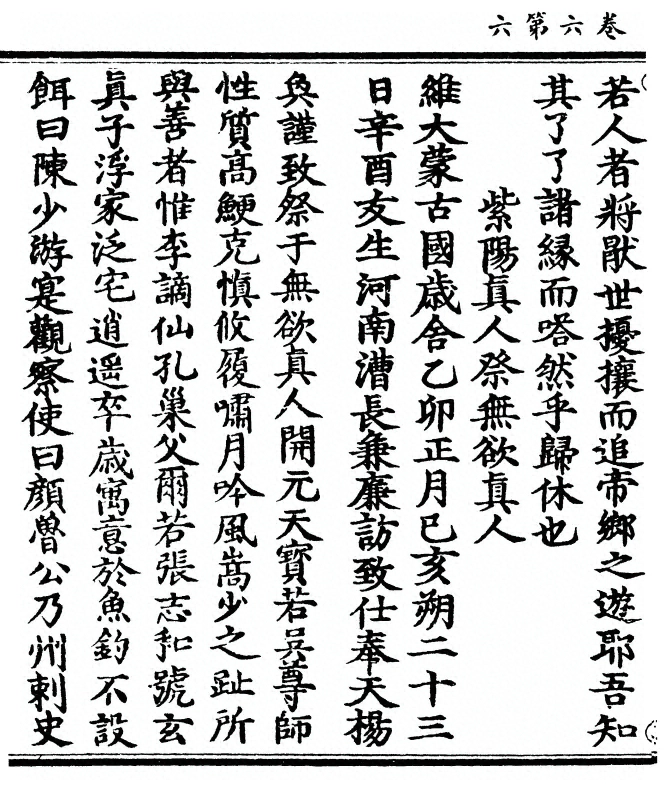 卷六第六
若人者將厭世擾攘而追帝鄉之遊耶吾知
其了了諸緣而嗒然乎歸休也
紫陽真人祭無欲真人
維大蒙古國歲舍乙卯正月己亥朔二十三
日辛酉友生河南漕長兼廉訪致仕奉天楊
奐謹致祭于無欲真人開元天寶若吳尊師
性質高鯁克慎攸履嘯月吟風嵩少之趾所
與善者惟李謫仙孔巢父爾若張志和號玄
真子浮家泛宅逍遥卒歲寓意於魚釣不設
餌曰陳少游寔觀察使曰顏魯公乃州刺史